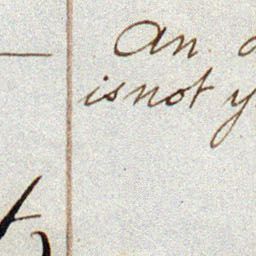 An
is not y